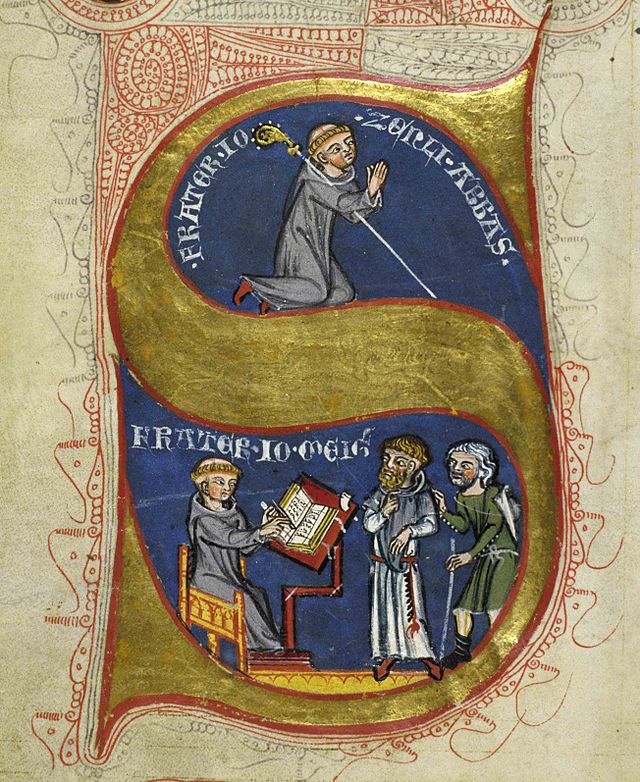 ·FRATER·IO·ZENLI·ABBAS·
FRATER·IO·MEIG